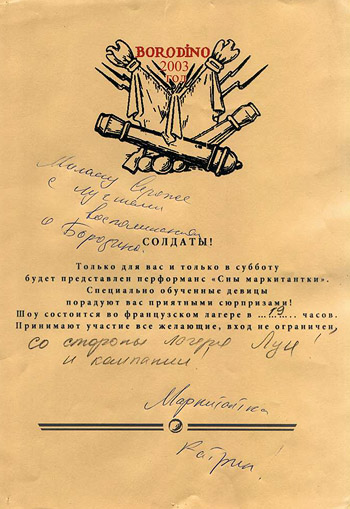 BORODINO
2003
ГОД
Милому Сероже
с лучшими
воспоминаниями
о Бородино.
СОЛДАТЫ!
Только для вас и только в субботу
будет представлен перформанс «Сны маркитантки».
Специально обученные девицы
порадуют вас приятными сюрпризами!
Шоу состоится во французском лагере в ...19... часов.
Принимают участие все желающие, вход не ограничен,
со стороны лагеря Луи!
и кампании.
Маркитантка
Катрин!